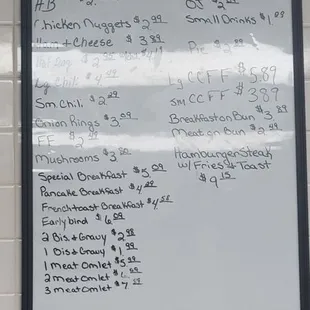 HB $2.
Chicken Nuggets $2.99
Ham + Cheese $3.89
Lg Chili $4
Sm. Chili $2.99
Onion Rings $3.09
FF $2
Mushrooms $3.
Special Breakfast $5.09
Pancake Breakfast $4.29
Frenchtoast Breakfast $4.58
Early bird $6.09
2 Bis. + Gravy $2.98
1 Bis + Gravy $1.99
1 meat Omlet $5.
2 meat Omlet $6.
3 meat Omlet $7.
OJ $2.
Small Drinks $1.
Pie $2.
Lg CCFF $5.89
Sm CCFF $3.89
Breakfast on Bun $3.89
Meat on Bun $2.99
Hamburger Steak
w/ Fries + Toast
$9.15